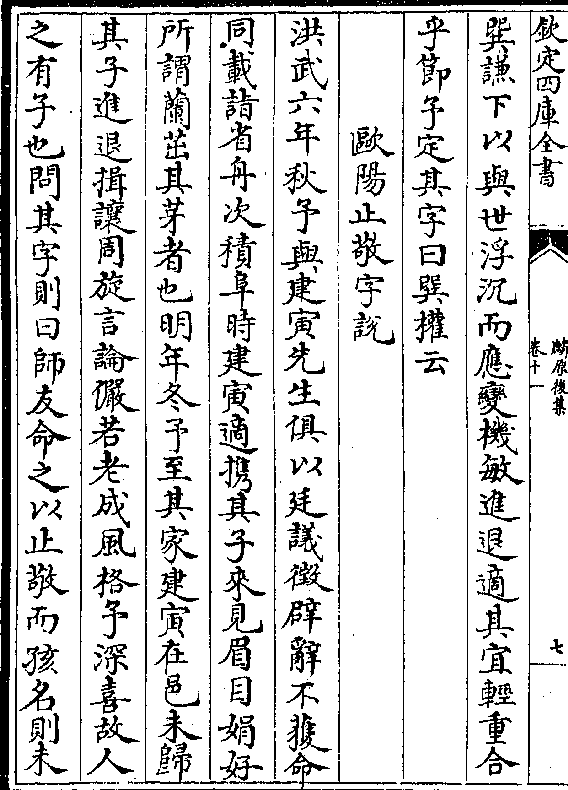 欽定四庫全書
麟原後集
卷十一
七
巽謙下以與世浮沉而應變機敏進退適其宜輕重合
乎節予定其字曰巽權云
歐陽止敬字說
洪武六年秋予與建寅先生俱以廷議徵辟辭不獲命
同載詣省舟次積阜時建寅適携其子來見眉目娟好
所謂蘭茁其芽者也明年冬予至其家建寅在邑未歸
其子進退揖讓周旋言論儼若老成風格予深喜故人
之有子也問其字則曰師友命之以止敬而孩名則未